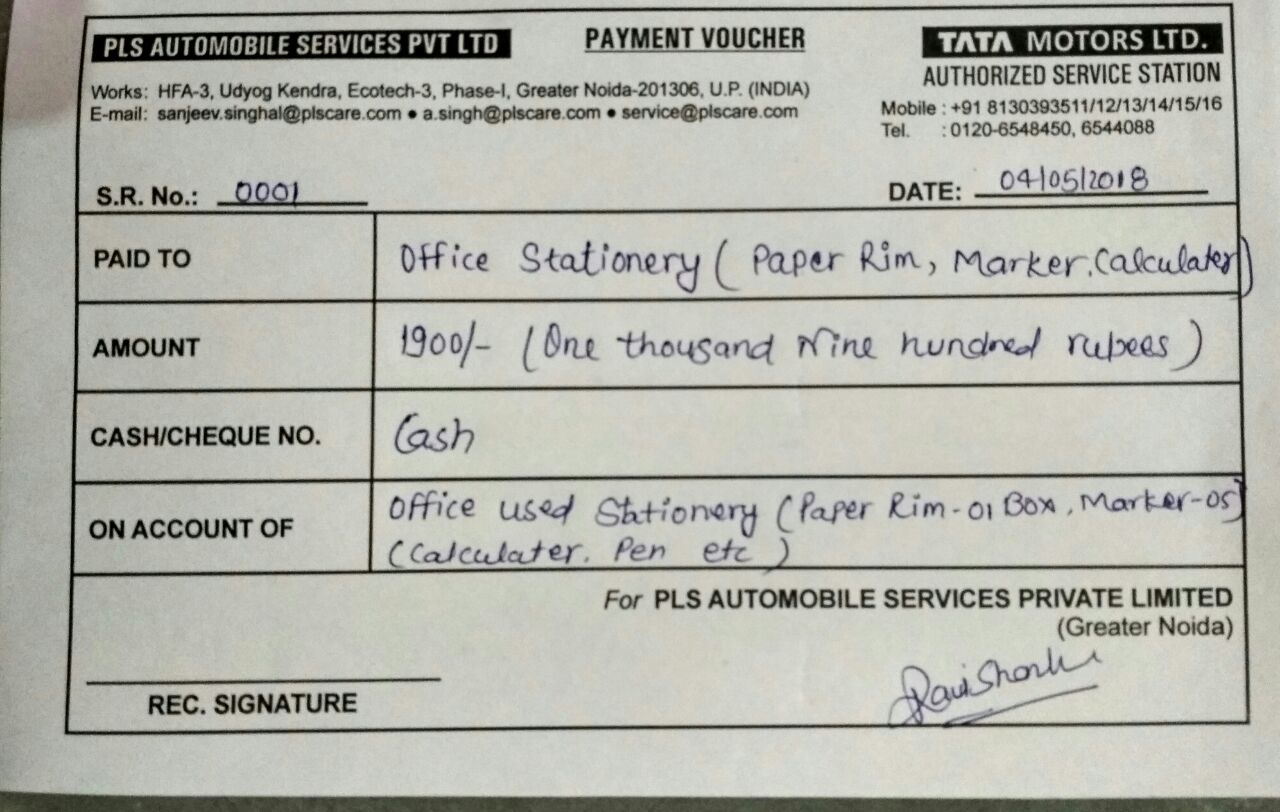 PLS AUTOMOBILE SERVICES PVT LTD
PAYMENT VOUCHER
TATA MOTORS LTD.
AUTHORIZED SERVICE STATION
Works: HFA-3, Udyog Kendra, Ecotech-3, Phase-I, Greater Noida-201306, U.P. (INDIA)
E-mail: sanjeev.singhal@plscare.com • a.singh@plscare.com • service@plscare.com
Mobile : +91 8130393511/12/13/14/15/16
Tel. : 0120-6548450, 6544088
S.R. No.: 0001
DATE: 04/05/2018
PAID TO Office Stationery ( Paper Rim, Marker, Calculater)
AMOUNT 1900/- (One thousand Nine hundred rupees)
CASH/CHEQUE NO. Cash
ON ACCOUNT OF Office used Stationery (Paper Rim-01 Box, Marker-05)
(Calculater. Pen etc)
For PLS AUTOMOBILE SERVICES PRIVATE LIMITED
(Greater Noida)
REC. SIGNATURE